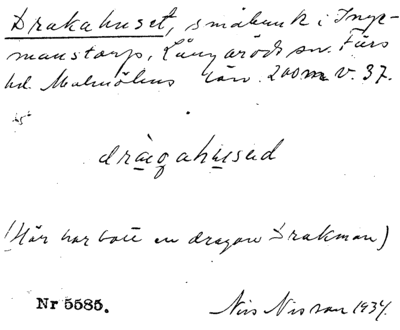 Drakahuset, småbruk i Inge-
manstorp, Långaröds sn. Färs
hd. Malmöhus län. 200 m v. 37.
dra̱gahu̱sed
(Här har bott en dragon Drakman)
Nr 5585. Nils Nilsson 1934.